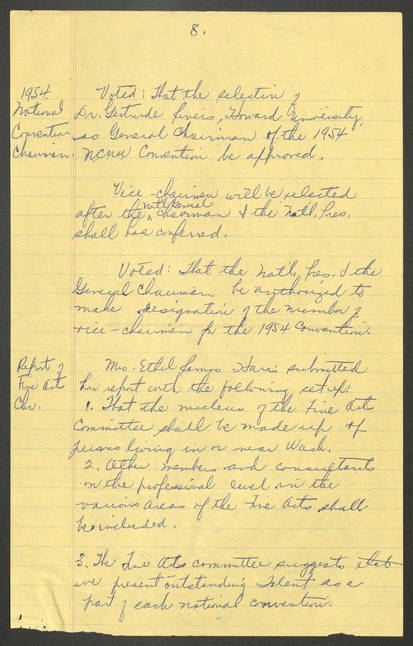 8.
1954 Voted: That the selection of
National Dr. Gertrude Rivers, Howard University,
Convention as General Chairman of the 1954
Chairman: NCNW Convention be approved.
Vice-chairmen will be selected
after the Natl General Chairman & the Natl. Pres.
shall have conferred.
Voted: That the Nat'l. Pres. & the
General Chairman be authorized to
make designation of the number of
vice-chairmen for the 1954 Convention.
Report of Mrs. Ethel Harris submitted
Fine Arts her report with the following set up:
Chr. 1. That the nucleus of the Fine Arts
Committee shall be made up of
persons living in or near Wash.
2. Other members and consultants
on the professional level in the
various areas of the Fine Arts shall
be included.
3. The Fine Arts committee suggests that
we present outstanding talent as a
part of each national convention.